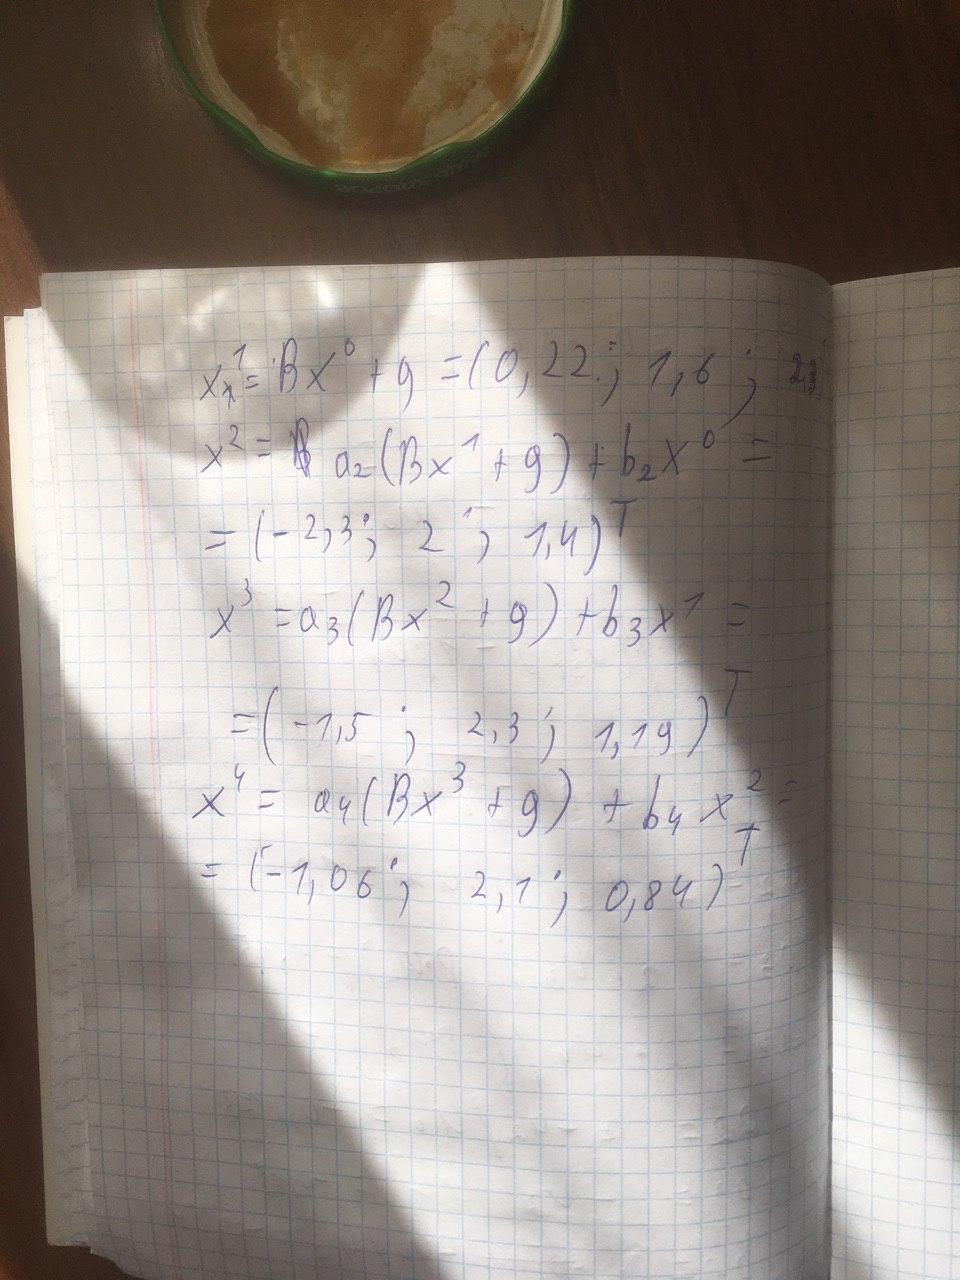 x¹ = Bx⁰ + g = (0,22 ; 1,6 ;
x² = a₂(Bx¹ + g) + b₂x⁰ =
= (-2,3 ; 2 ; 1,4)ᵀ
x³ = a₃(Bx² + g) + b₃x¹ =
= (-1,5 ; 2,3 ; 1,19)ᵀ
x⁴ = a₄(Bx³ + g) + b₄x² =
= (-1,06 ; 2,1 ; 0,84)ᵀ